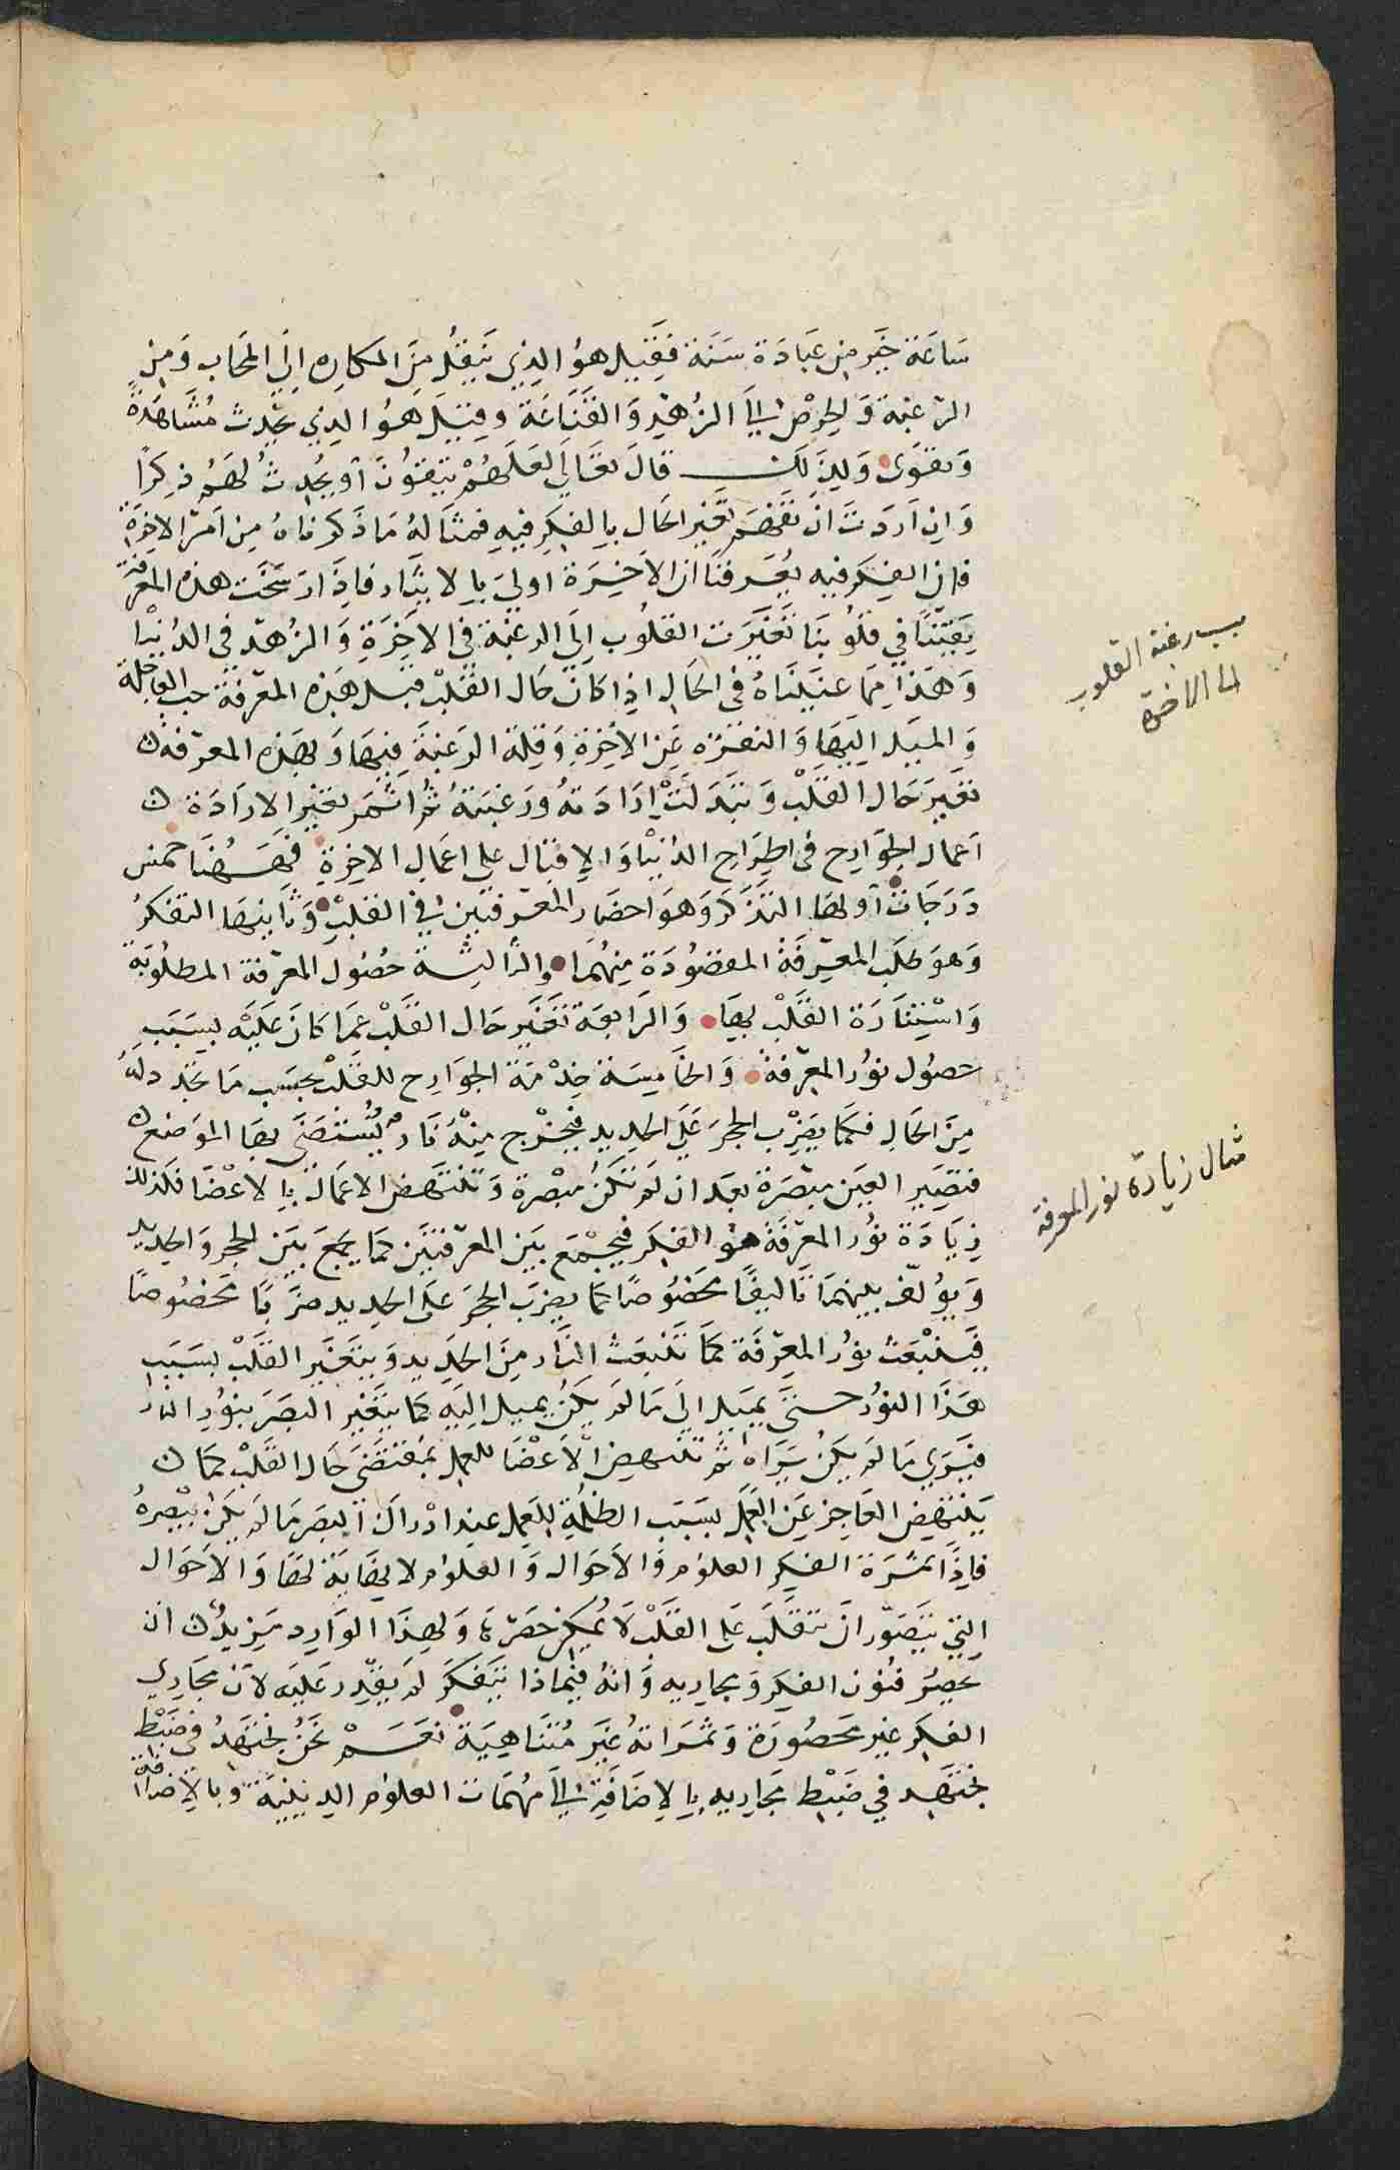 سَاعَة خَير مِن عِبَادَة سَنَة فَقِيل هوُ الذِي يَنقُل مِنَ المكارِه إلَى المحَاب وَمِن
الرّغبة وَالحِرْص إلَى الزُهْدِ وَالقَنَاعَة وقِيلَ هَوُ الذِي يحْدِث مُشَاهَدَةً
وَتقوَى وَلِذَلِكَ قالَ تعَالَى لعَلَهُمْ يَتقوُنَ أو يُحْدِثُ لهَمُ ذِكرًا
وَإن أرَدتَ أن تَفْهَم تغَير الحَال بِالفِكِر فيهِ فمثَالهُ مَا ذَكرناهُ مِن أمَر الاخِرَة
فإن الفِكر فيهِ يُعَرفنَا ان الاخِرَة اولَى بِالايثَار فإذَا رَسَخَت هذه المعْرفة
يَقيْنًا في قلُوبنَا تَغَيَّرَت القلوُب إلَى الرغبَة في الاخِرَةِ وَالزُهدْ في الدُنيْا
وَهَذَا مِمَا عنَيَنَاهُ في الحَالِ اذِا كانَ حَال القَلْب قبَل هَذِه المعْرفة حب العَاجلة
وَالميَل إليَهاِ وَالنفرْه عَن الاخِرَةِ وَقِلة الرَغبَة فِيهَا وَبهذَه المعرْفة
تغَيرَ حَال القَلْب وَتبَدَلَتْ إرَادَتهُ ورَغبَتهُ ثمُ اثمَر تغيْر الارَادَة
أعمال الجوَارِح في اطِرَاحِ الدُنيْا وَالإقبَال على اعمَال الاخِرَةِ فهَهُنَا خمَس
دَرَجَات أولهَا التذَكَر وَهوَ احضَار المعْرفتَين في القَلْبِ وَثانيهَا التفكرُ
وَهوَ طَلَب المعْرِفَة المقصُودَة مِنهُمَا وَالثالِثة حصُول المعرْفة المطلوُبَة
وَاسْتِنَارَة القَلْب بهَا وَالرَابعَة تَغَيَير حَال القَلْب عمَا كانَ عَليَْه بِسَبَب
حصُول نوُر المعْرفة وَالخَامِسَة خِدْمَة الجوَارِح للقَلْب بحسَب مَا تجَدد لهُ
مِنَ الحَالِ فكَمَا يضرْب الحجَر عَلى الحَدِيد فيَخْرج مِنْهُ نَارٌ يُستضَى بهَا الموَضِع
فتَصِيَر العَين مبْصَرَة بعَد ان لمَ تكنُ مبْصِرة وَتنْتَهَض الاعمَال بِالاعْضَا فكذلك
زِيَادَة نوُر المعْرِفَة هوُ الفِكَر فيَجْمَع بيَن المعْرفتيَن كمَا يجمَع بيَن الحجَر وَالحَدِيد
وَيؤُلف بينهمَا تَاليفًا مخَصوُصًا كمَا يضرَب الحجَر عَلى الحَدِيد ضرَبًا مخَصُوصًا
فيَنْبَعَثُ نوُر المعْرِفَة كمَا تَنْبَعَث النَار مِنَ الحَدِيد وَيتَغَيَر القَلْبْ بسَبَب
هَذَا النوُر حتىَّ يمَيل إلَى مَا لمَ يكَنُ يميَل إليَه كمَا يتَغَيَر البصَر بِنوُر النار
فيَرَى مَا لمَ يكَنْ يَرَاه ثم تنْتهِض الأعْضَا للعمل بمُقتَضَى حَال القَلْب كمَا
يَنْتَهِض العَاجِز عَن العَمَل بسَبَب الظلمَة لِلعَمل عِند ادْرَاك البصَر مَا لمَ يكَن يبْصِرهُ
فإذًا ثمَرَة الفِكر العلوُم وَالاحَوَال وَالعلوُم لا نهَايَة لهَا وَالأحَوَال
التِي يتَصَوَّر أن تتقلَب عَلى القَلْب لا يُمكِن حَصْرهَا وَلهِذَا الوَارِد مَزِيدٌ ان
حَصْرُ فنُون الفِكر وَمجَاريه وَانهُ فِيماذا يتَفكرَ لمَ يقْدِر عَليَه لأنَ مجَارِي
الفِكر غيَر محَصُورَة وَثمرَاتهُ غيَر مُتنَاهِيَة نعَمْ نحَنُ نجَتهدُ في ضبَط
نجتَهِد في ضَبْط مجَارِيه بِالإضَافةِ إلَى مهُمَات العلوُم الدِينيَة وَبالإضافة
سبب رغبة القلوب
الى الاخرة
مثال زيادة نور المعرفة